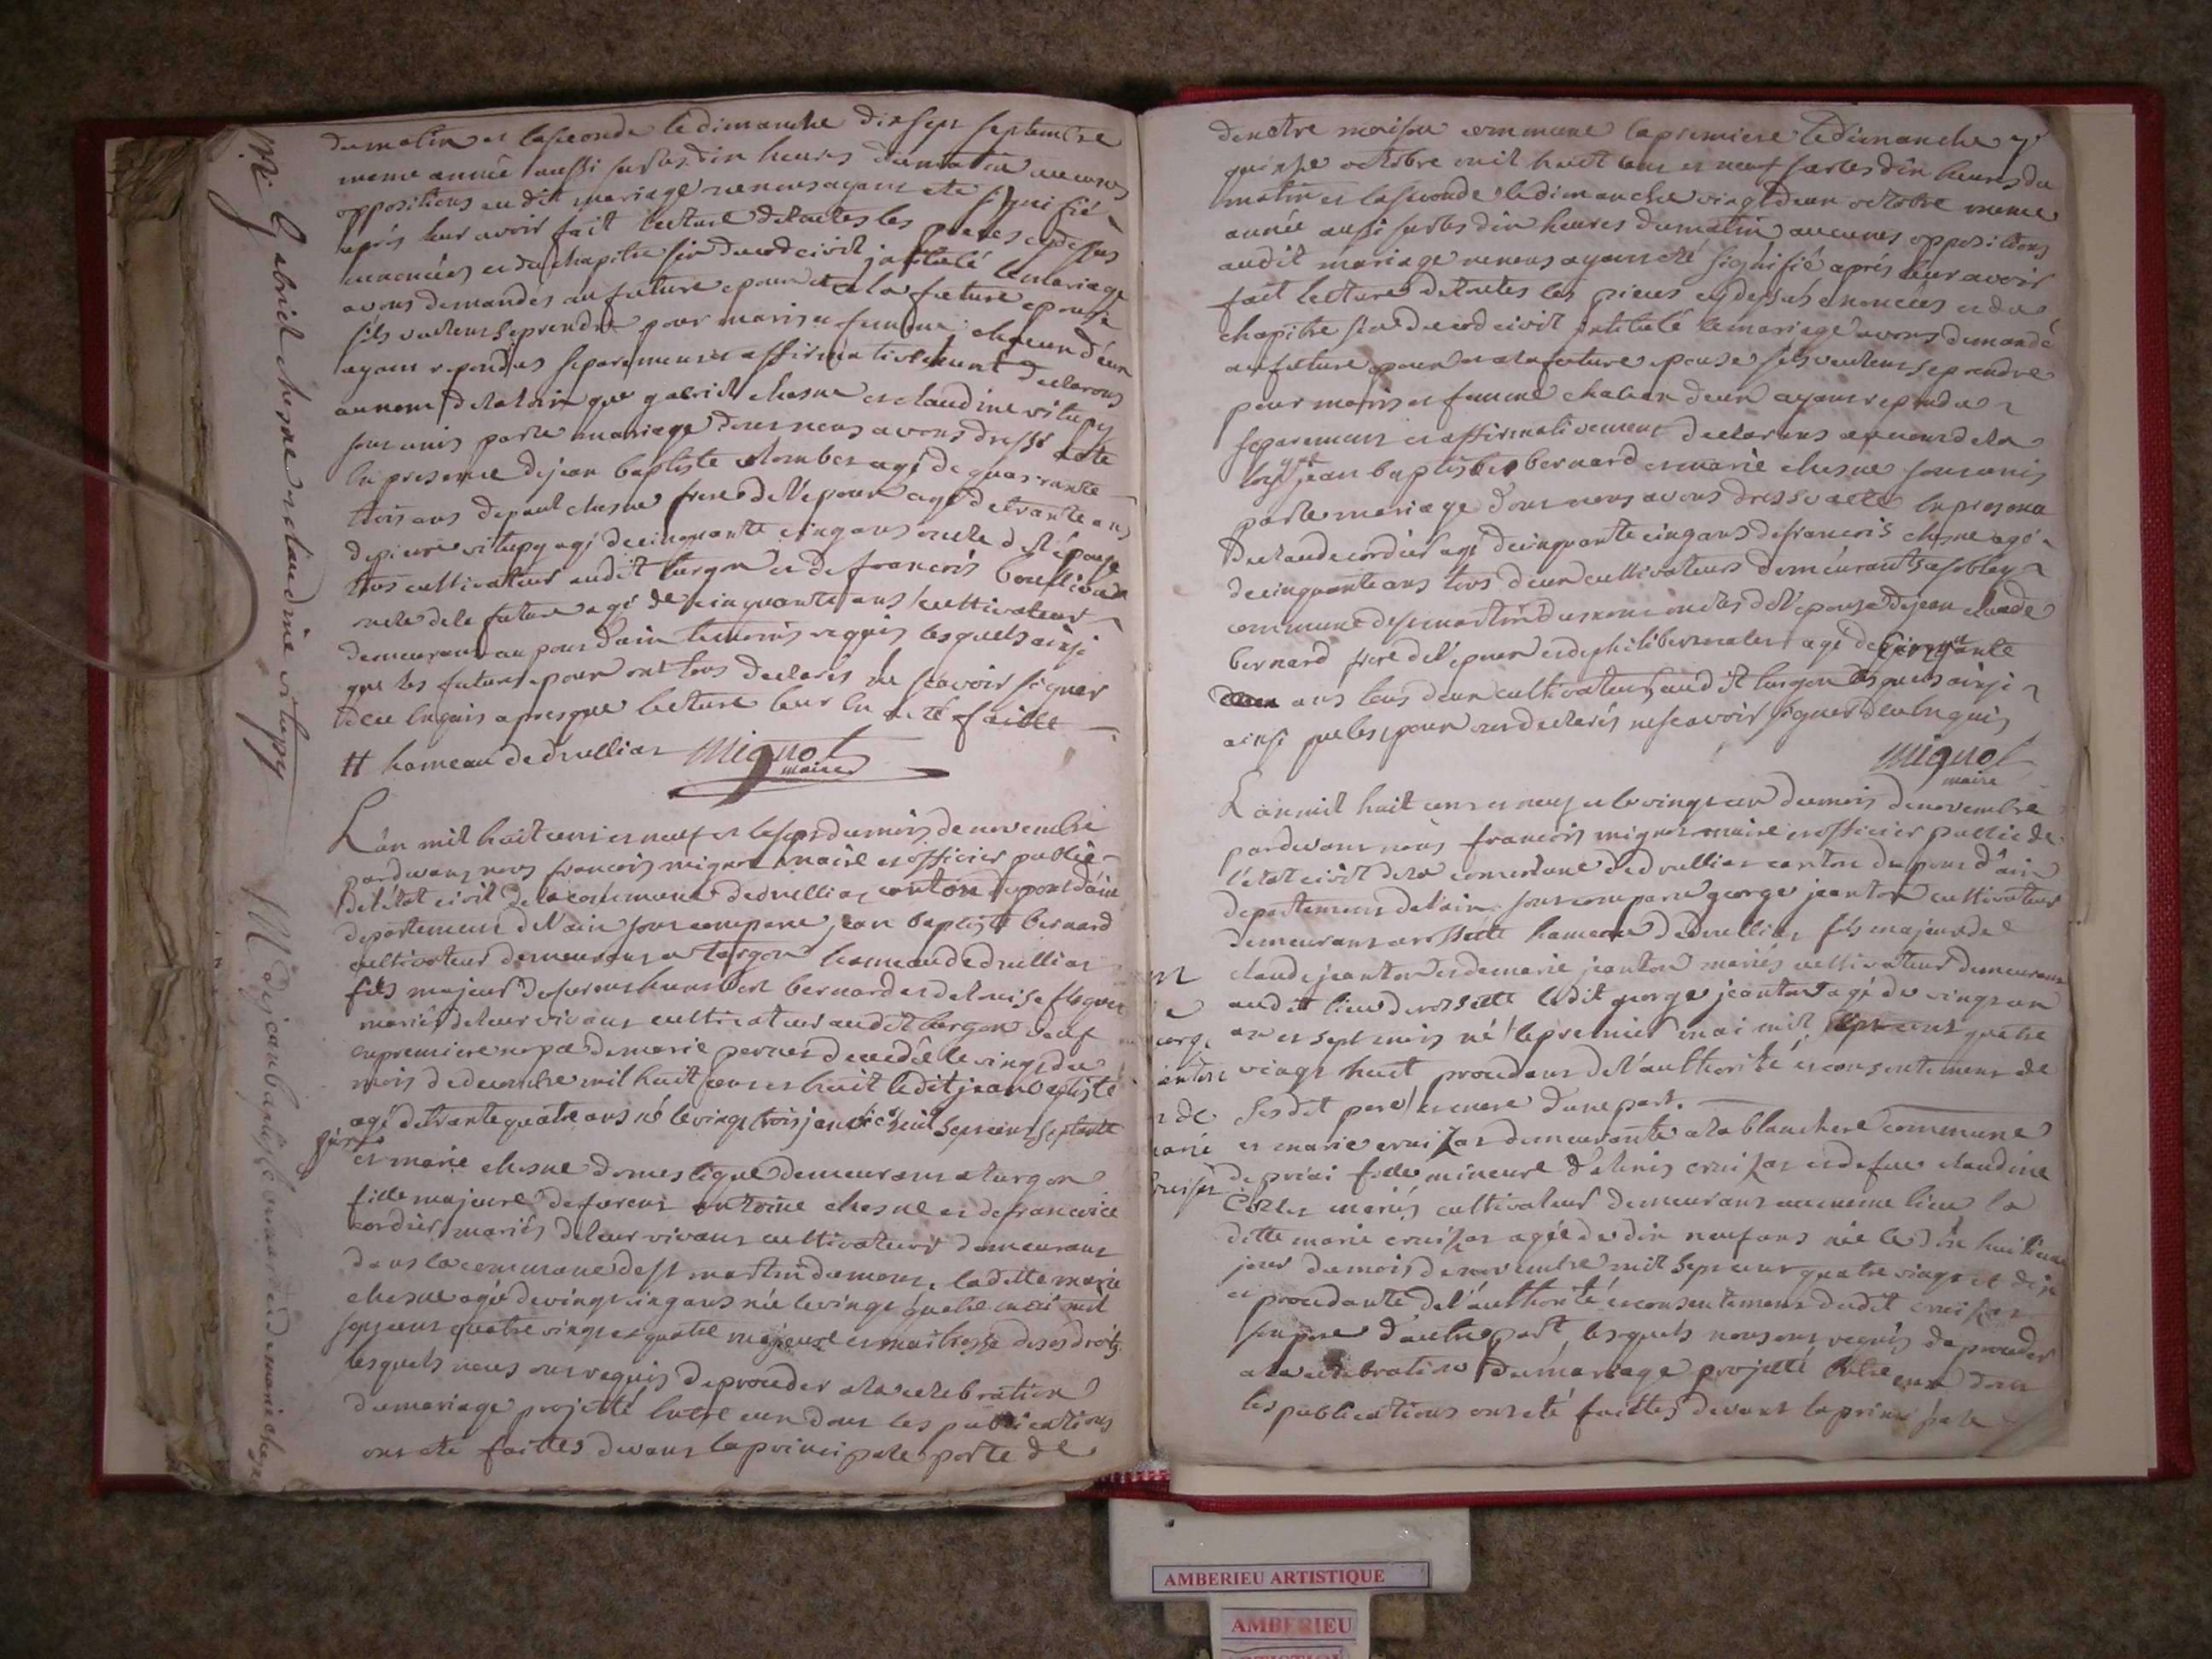 Me Gabriel chesne et claudine vitupy
M de jean baptiste bernard et de marie chesne
du matin et la seconde le dimanche dix sept septembre
meme année aussi sur les dix heures du matin aucunes
oppositions au dit mariage ne nous ayans eté signifié
aprés leur avoir fait lecture de toutes les pieces cy dessus
enoncées et du chapitre six du code civil jntitulé le mariage
avons demandés au future epoux et a la future epouse
sils veulent se prendre pour maris et femme chacun d'eux
ayans repondus separemens et affirmativement declarons
au nom de la loix que gabriel chesne et claudine vitupy
sont unis par le mariage dont nous avons dressé acte
en presence de jean baptiste colomber agé de quarrante
trois ans de paul chesne frere de l'epoux agé de trante ans
de pierre vitupy agé de cinquante cinq ans oncle de l'épouse
tous cultivateur audit turgon et de francois
oncle de la future agé de cinquante ans cultivateur
demeurant au pont d'ain temoins requis lesquels ainsi
que les futurs epoux ont tous declarés ne scavoir signer
de ce enquis apres que lecture leur en a eté faitte
H hameau de druillias Mignot
maire
L'an mil huit cent et neuf et le sept du mois de novembre
pardevans nous francois mignot maire et officier public
de l'état civil de la commune de druillias canton du pont d'ain
departement de l'ain sont comparus jean baptiste bernard
cultivateur demeurant a turgon hameau de druillias
fils majeur de furent humbert bernard et de louise
mariés de leur vivant cultivateur audit turgon veuf
en premiere nopce de marie pernet decedée le vingt du
mois de decembre mil huit cent et huit le dit jean baptiste
agé de trante quatre ans né le vingt trois janvier mil sept cent septante
et marie chesne domestique demeurans a turgon
fille majeure de furent antoine chesne et de francoise
cordier mariés de leur vivans cultivateurs demeurans
dans la commune de st martin du mont, la ditte marie
chesne agée de vingt cinq ans née le vingt quatre mai mil
sept cent quatre vingt et quatre majeure et maitresse de ses droits
lesquels nous ont requis de proceder a la celebration
du mariage projetté entre eux dont les publications
ont eté faittes devans la principale porte de
de notre maison commune la premiere le dimanche
quinze octobre mil huit cent et neuf sur les dix heures du
matin et la seconde le dimanche vingt deux octobre meme
année aussi sur les dix heures du matin aucunes oppositions
audit mariage ne nous ayans eté signifié aprés leur avoir
fait lecture de toutes les pieces cy dessus enoncées et du
chapitre six du code civil jntitulé le mariage avons demandé
au future epoux et a la future epouse sils veulent se prendre
pour maris et femme chacun d'eux ayans repondu
separemens et affirmativement declarons au nom de la
loy que jean baptiste bernard et marie chesne sont unis
par le mariage dont nous avons dressé acte en presence
de claude cordier agé de cinquante cinq ans de francois chesne agé
de cinquante ans tous deux cultivateurs demeurants a soblay
commune de st martin du mont oncles de l'epouse de jean claude
bernard frere de l'epoux et de philibert agé de cinquante
ans tous deux cultivateurs audit turgon lesquels ainsi
ainsi que les epoux ont declarés ne scavoir signer de ce enquis
Mignot
maire
L'an mil huit cent et neuf et le vingt un du mois de novembre
pardevans nous francois mignot maire et officier public de
l'état civil de la commune de druillias canton du pont d'ain
departement de l'ain sont comparus george jeanton cultivateur
demeurant a rossette hameau de druillias fils majeur de
claude jeanton et de marie jeanton mariés cultivateur demeurans
audit lieu de rossette ledit george jeanton agé de vingt un
an et sept mois né le premier mai mil sept cent quatre
vingt huit procedans de l'authorité et consentement de
ses dit pere et mere d'une part.
et marie cruizat demeurante a la blanchere commune
de priai fille mineure d'alexis cruizat et de feue claudine
mariés cultivateur demeurans au meme lieu la
ditte marie cruizat agée de dix neuf ans née le dix huitieme
jour du mois de novembre mil sept cent quatre vingt et dix
et procedante de l'authorité et consentement dudit cruizat
son pere d'autre part lesquels nous ont requis de proceder
a la celebration du mariage projetté entre eux dont
les publications ont eté faittes devant la principale
AMBERIEU ARTISTIQUE
AMBERIEU